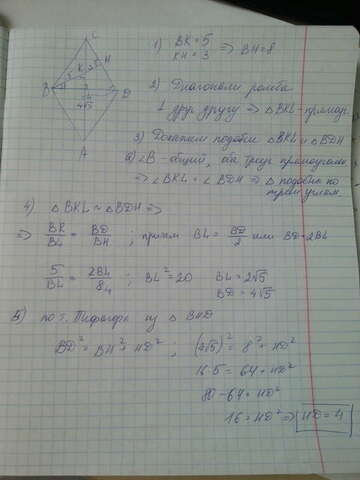 C
K 3 H
5
B
D
4√5
A
1) BK = 5
KH = 3 ⇒ BH = 8
2) Диагонали ромба
⊥ друг другу ⇒ △BKL - прямоуг.
3) Докажем подобие △BKL и △BDH
∠B - общий, оба треуг. прямоугольн.
⇒ ∠BKL = ∠BDH ⇒ △ подобны по
трем углам.
4) △BKL ~ △BDH ⇒
⇒ BK/BL = BD/BH ; причем BL = BD/2 или BD = 2BL
5/BL = 2BL/8 4 ; BL² = 20 BL = 2√5
BD = 4√5
5) по т. Пифагора из △ BHD
BD² = BH² + HD² ; (4√5)² = 8² + HD²
16·5 = 64 + HD²
80 - 64 = HD²
16 = HD² ⇒ HD = 4